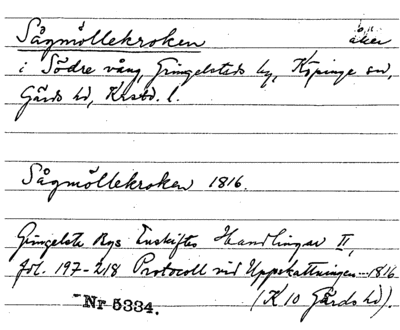 Sågmöllekroken åker
i Södre vång, Gringelstads by, Köpinge sn,
Gärds hd, Krstd. l.
Sågmöllekroken 1816.
Gringelsta Bys Enskiftes Handlingar II,
fol. 197-218 Protocoll vid Uppskattningen --- 1816
(K 10 Gärds hd).
Nr 5334.